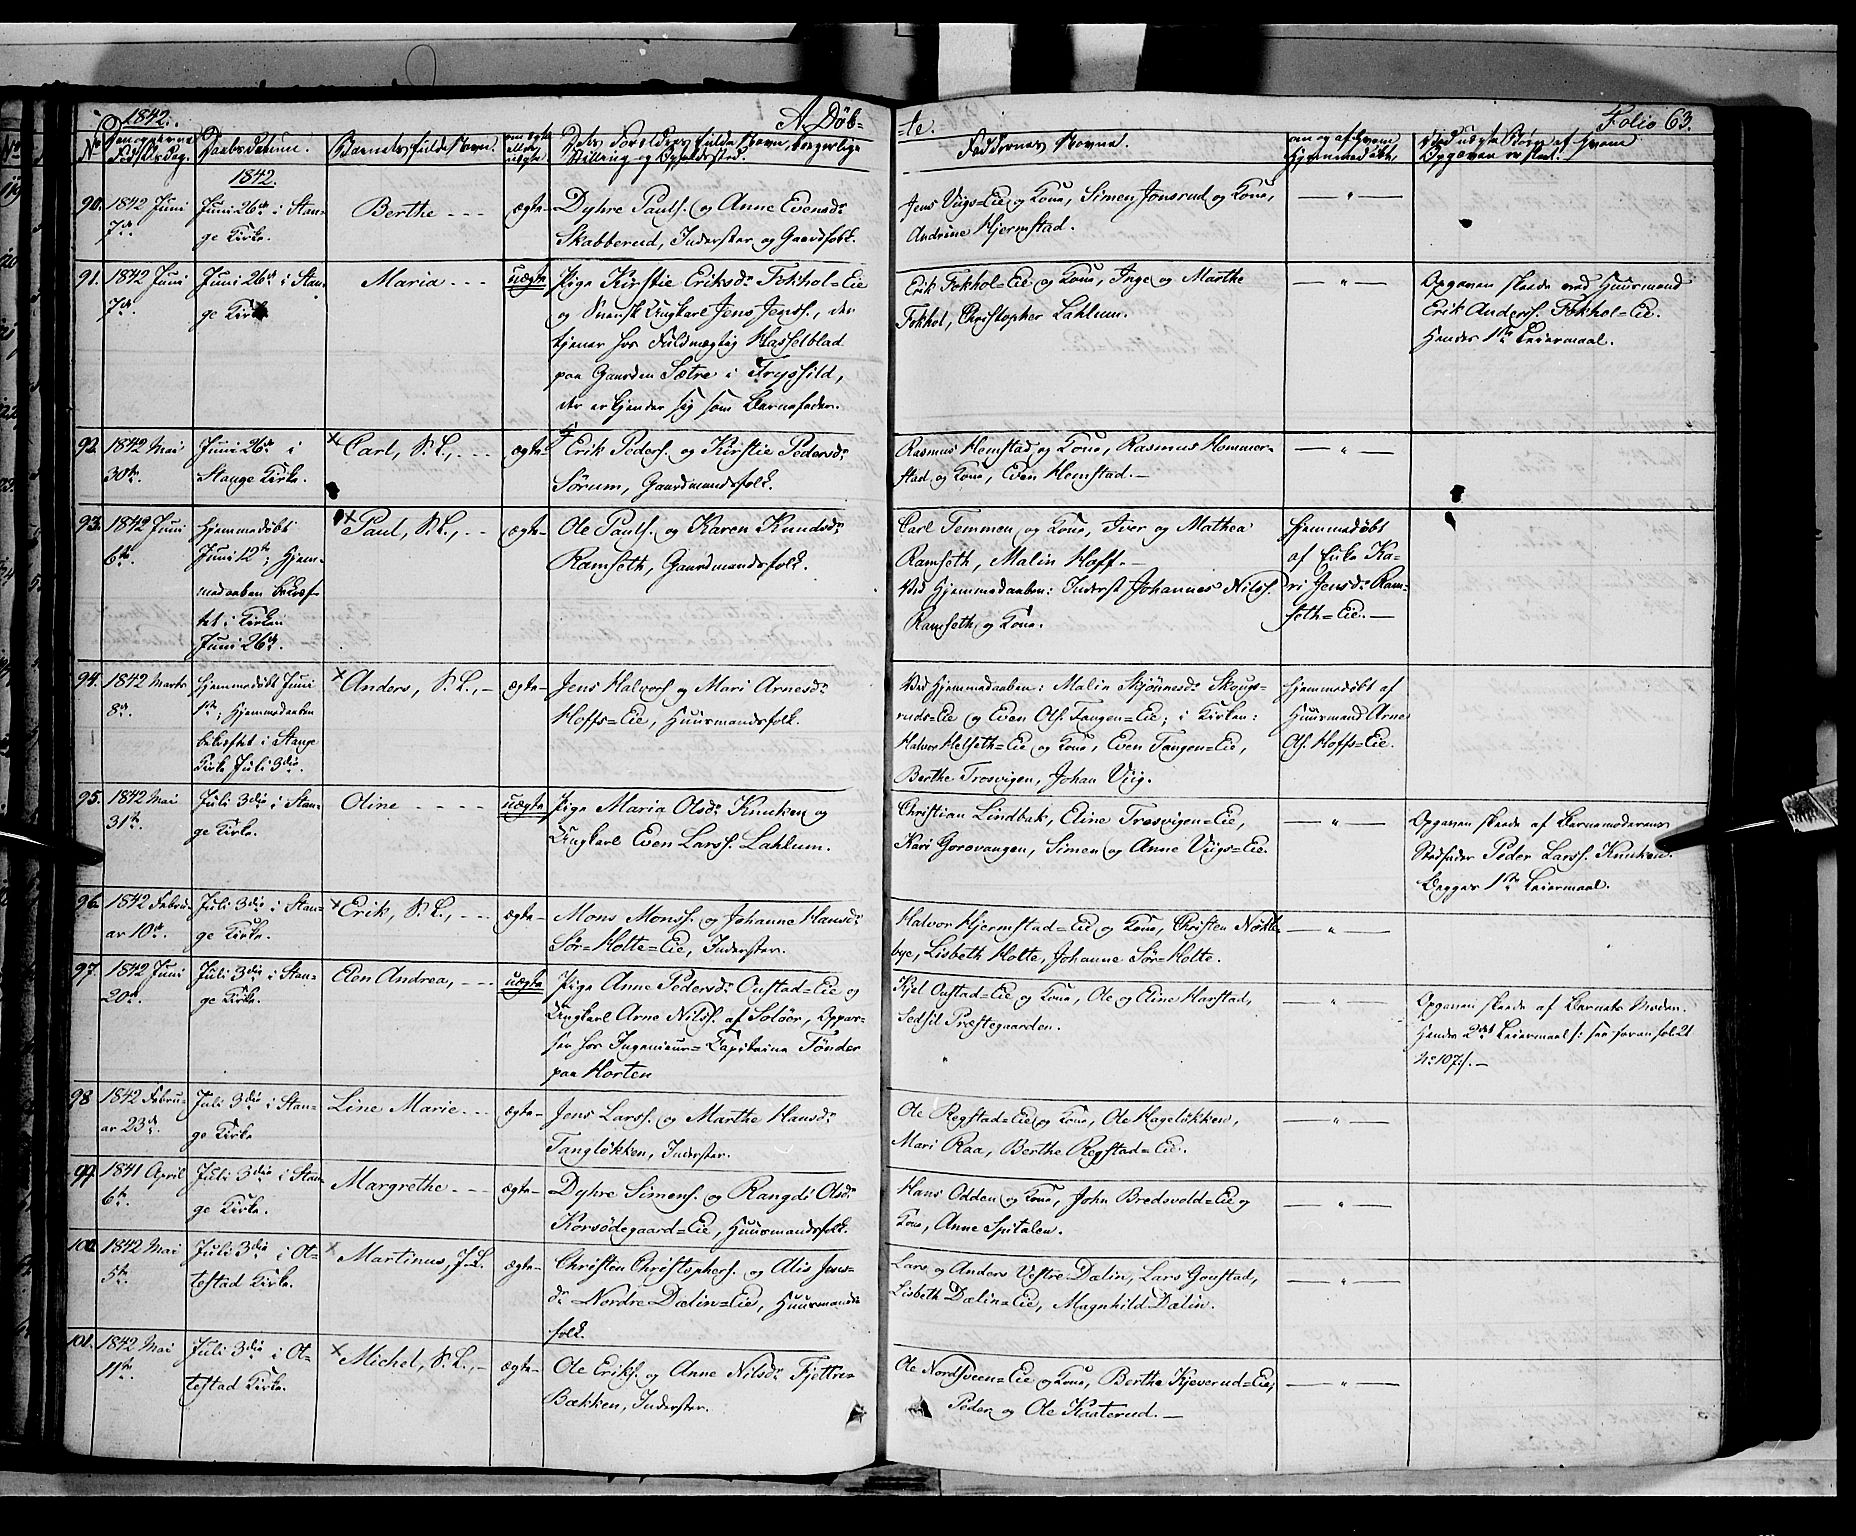 1842.
A. Døb-
te.
Folio 63.
No
Barnets fulde Navn.
Faddernes Navne.
1842.
90. 1842 Juni 7de
Juni 26de i Stan-
ge Kirke.
Berthe
ægte
Dyhre Pauls. og Anne Evensdr
Skabberud, Inderster og Gaardfolk.
Jens Viigs=Eie og Kone, Simen Jonsrud og Kone,
Andrine Hjermstad.
91. 1842 Juni 7de
Juni 26de i Stan-
ge Kirke
Maria
uægte
Pige Kirstie Eriksdr Fokhol=Eie
og Svensk Ungkarl Jens Jenss., der
tjener hos Fuldmægtig Hasselblad
paa Gaarden Sætre i Tryssild,
der erkjender sig som Barnefader.
Erik Fokhol=Eie og Kone, Inge og Marthe
Fokhol, Christopher Lahlum.
Opgaven skeede ved Huusmand
Erik Anderss. Fokhol=Eie.
Hendes 1ste Leiermaal.
92. 1842 Mai 30te.
Juni 26de i
Stange Kirke.
Carl, S. L.,
ægte
Erik Peders. og Kirstie Pedersdr
Sørum, Gaardmandsfolk.
Rasmus Hemstad og Kone, Rasmus Hommer-
stad og Kone, Even Hemstad.
93. 1842 Juni 6te
Hjemmedøbt
Juni 12te; Hjem-
medaaben bekræf-
tet i Kirken
Juni 26de.
Paul, S. L.,
ægte
Ole Pauls. og Karen Knudsdr
Ramseth, Gaardmandsfolk.
Carl Temmen og Kone, Iver og Mathea
Ramseth, Malin Hoff.
Ved Hjemmedaaben: Inderst Johannes Nilss.
Ramseth og Kone.
Hjemmedøbt
af Enke Ka-
ri Jensdr Ram-
seth=Eie.
94. 1842 Marts 8de
Hjemmedøbt Juni
1ste; Hjemmedaaben
bekræftet i Stange
Kirke Juli 3die.
Anders, S. L.,
ægte
Jens Halvors. og Mari Arnesdr
Hoffs=Eie, Huusmandsfolk.
Ved Hjemmedaaben: Malin Skjønnesdr Skougs-
ruds=Eie og Even Ols. Tangen=Eie; i Kirken:
Halvor Helseth=Eie og Kone, Even Tangen=Eie,
Berthe Trosvigen, Johan Viig.
Hjemmedøbt af
Huusmand Arne
Ols. Hoffs=Eie.
95. 1842 Mai 31te.
Juli 3die i Stan-
ge Kirke.
Oline
uægte
Pige Maria Olsdr Knuken og
Ungkarl Even Larss. Lahlum.
Christian Lindbak, Eline Trosvigen=Eie,
Kari Gorovangen, Simen og Anne Viigs=Eie.
Opgaven skeede af Barnemoderens
Stedfader Peder Larss. Knuken.
Begges 1ste Leiermaal.
96. 1842 Febru-
ar 10de.
Juli 3die i Stan-
ge Kirke.
Erik, S. L.,
ægte
Mons Monss. og Johanne Hansdr
Sør=Holte=Eie, Inderster.
Halvor Hjermstad=Eie og Kone, Christen Nøkle-
bye, Lisbeth Holte, Johanne Sør=Holte.
97. 1842 Juni 20de.
Juli 3die i Stan-
ge Kirke.
Elen Andrea,
uægte
Pige Anne Pedersdr Oustad=Eie og
Ungkarl Arne Nilss. af Soløer, Oppas-
ser hos Ingenieur=Capitaine Sønder
paa Horten
Kjel Oustad=Eie og Kone, Ole og Eline Harstad,
Sedsil Præstegaarden.
Opgaven skeede af Barnets Moder.
Hendes 2det Leiermaal /: see foran fol. 21
No 107:/.
98 1842 Febru-
ar 23de.
Juli 3die i Stan-
ge Kirke
Line Marie
ægte
Jens Larss. og Marthe Hansdr
Tangløkken, Inderster.
Ole Regstad=Eie og Kone, Ole Hageløkken,
Mari Raa, Berthe Regstad=Eie.
99 1841 April 6te.
Juli 3die i Stan-
ge Kirke.
Margrethe
ægte
Dyhre Simens. og Rangdi Olsdr
Korsødegaard=Eie, Huusmandsfolk.
Hans Odden og Kone, John Bredsvold=Eie og
Kone, Anne Spitalen.
100. 1842 Mai 5te.
Juli 3die i Ot-
testad Kirke.
Martinus, J. L.
ægte
Christen Christophers. og Alis Jens-
dr Nordre Dælin=Eie, Huusmands-
folk.
Lars og Anders Vestre Dælin, Lars Gonstad,
Lisbeth Dælin=Eie, Magnhild Dælin.
101. 1842 Mai 11te.
Juli 3die i Ot-
testad Kirke.
Michel, S. L.,
ægte
Ole Eriks. og Anne Nilsdr Fjettre-
Bækken, Inderster.
Ole Nordsveen=Eie og Kone, Berthe Kjeverud=Eie,
Peder og Ole Kaaterud.